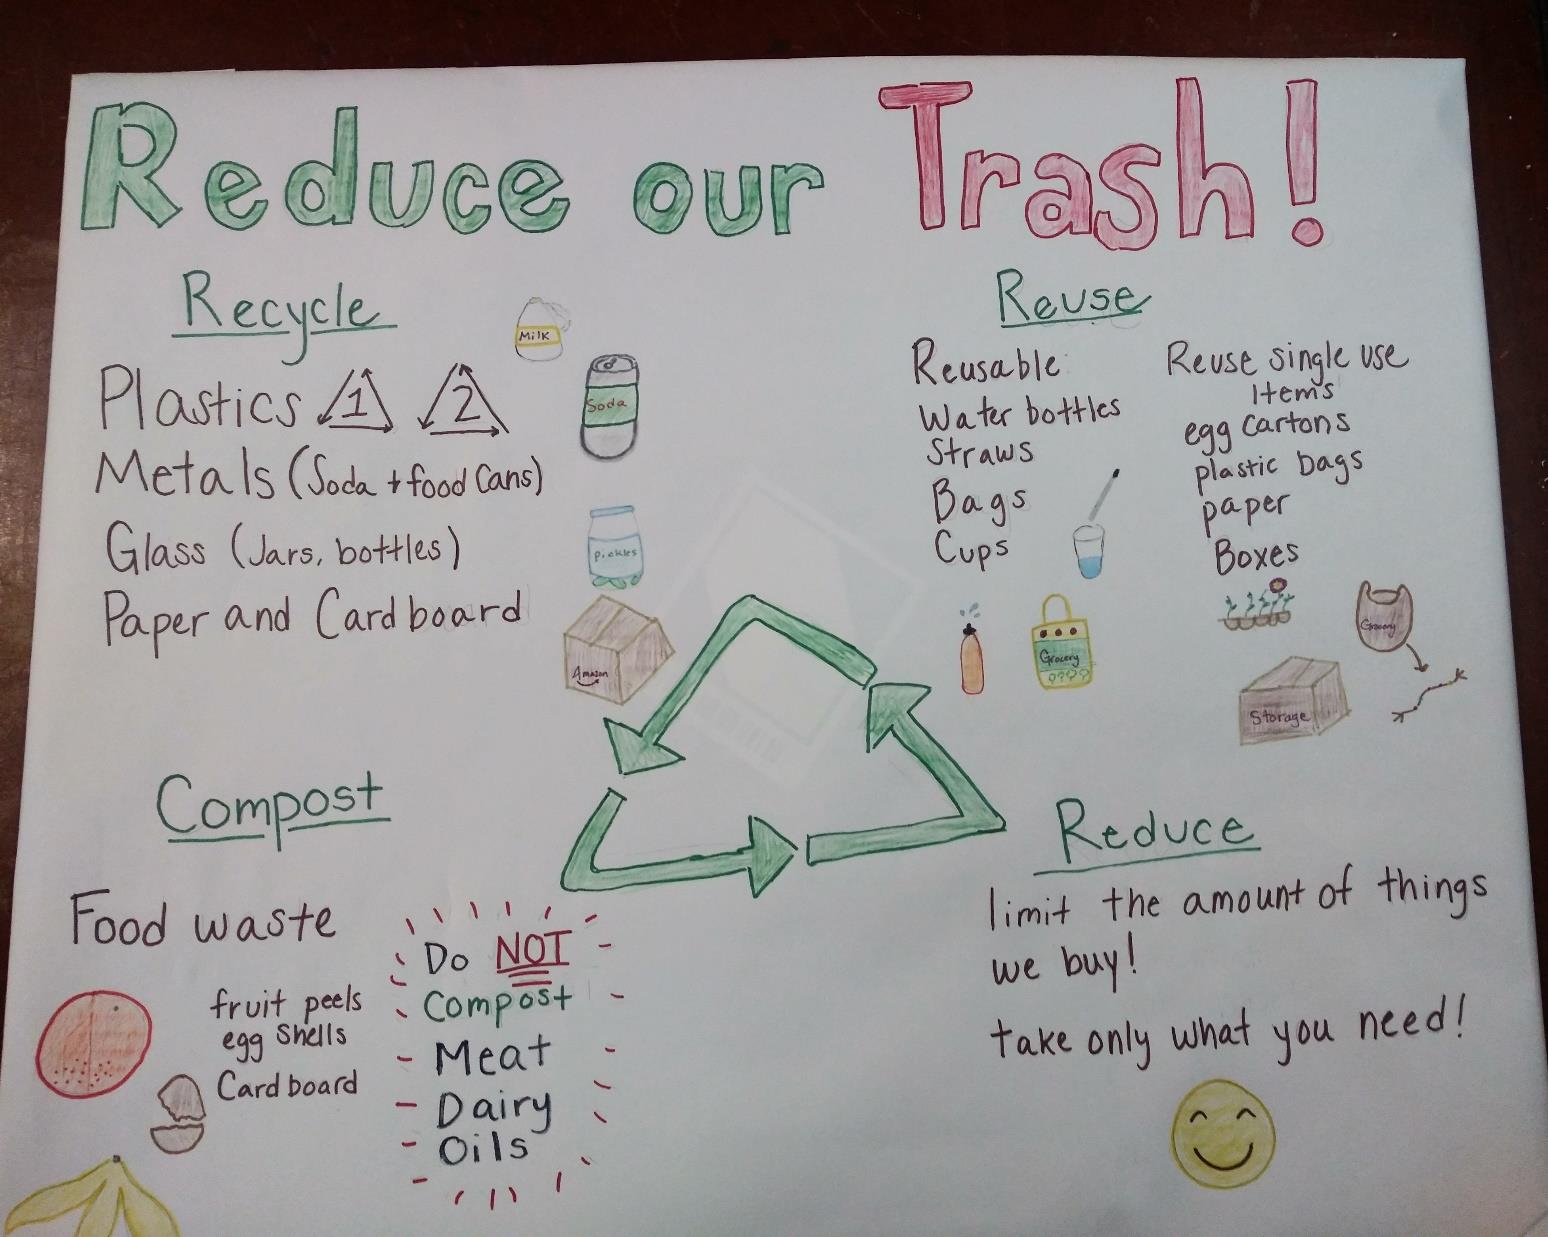 Reduce our Trash!
Recycle
Plastics 1 2
Metals (Soda + food Cans)
Glass (Jars, bottles)
Paper and Cardboard
Milk
Soda
Pickles
Amazon
Reuse
Reusable
Water bottles
Straws
Bags
Cups
Grocery
Reuse single use
Items
egg cartons
plastic bags
paper
Boxes
Grocery
Storage
Compost
Food waste
fruit peels
egg shells
Cardboard
Do NOT
Compost
Meat
Dairy
Oils
Reduce
limit the amount of things
we buy!
take only what you need!